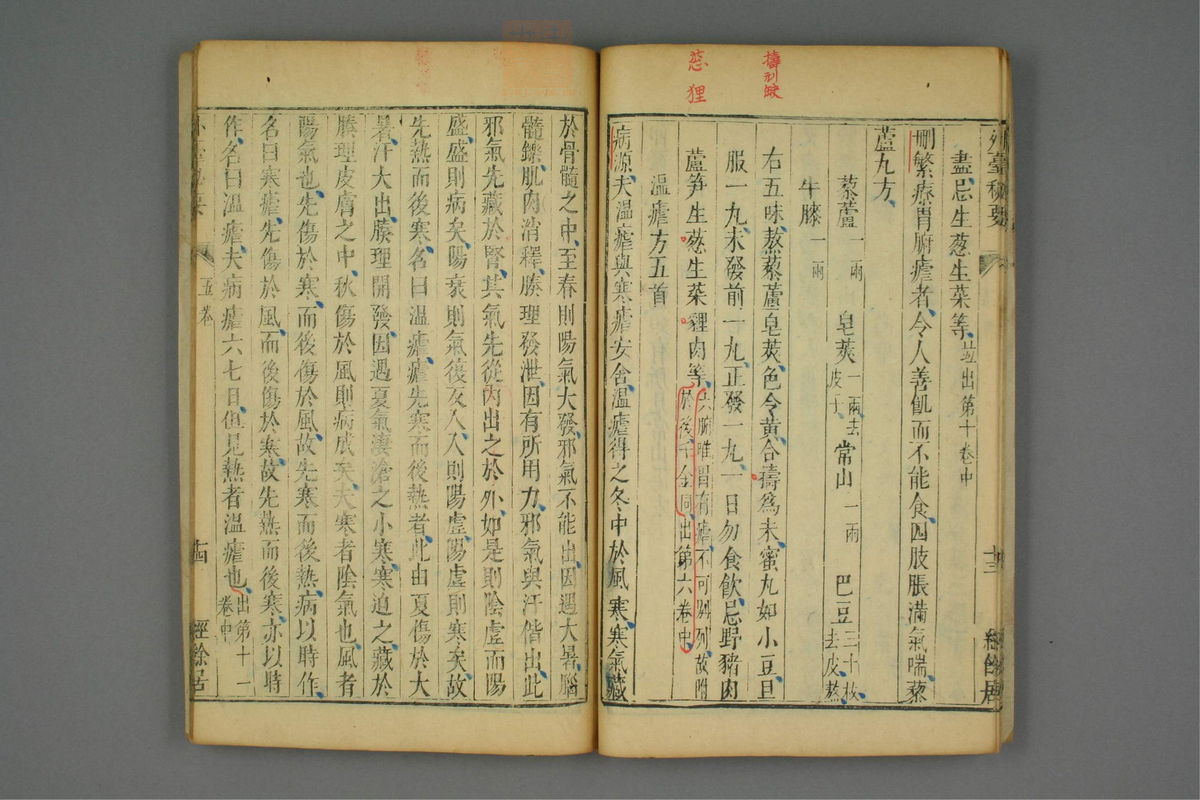 擣刋皎
葱
狸
外臺秘要
十三
經餘居
盡忌生葱生菜等並出第十卷中
刪繁療胃腑瘧者令人善飢而不能食四肢脹滿氣喘藜
蘆丸方
藜蘆一兩 皂莢一兩去皮子 常山一兩 巴豆三十枚去皮熬
牛膝一兩
右五味熬藜蘆皂莢色令黃合禱爲末蜜丸如小豆旦
服一丸未發前一丸正發一丸一日勿食飲忌野豬肉
蘆笋生葱生菜貍肉等六腑唯胃有瘧不可別列故附於後千金同出第六卷中
溫瘧方五首
病源夫溫瘧與寒瘧安舍溫瘧得之冬中於風寒寒氣藏
於骨髓之中至春則陽氣大發邪氣不能出因遇大暑腦
髓鑠肌肉消釋腠理發泄因有所用力邪氣與汗偕出此
邪氣先藏於腎其氣先從內出之於外如是則陰虛而陽
盛盛則病矣陽衰則氣復反入入則陽虛陽虛則寒矣故
先熱而後寒名曰溫瘧瘧先寒而後熱者此由夏傷於大
暑汗大出腠理開發因遇夏氣淒滄之小寒寒迫之藏於
腠理皮膚之中秋傷於風則病成矣夫寒者陰氣也風者
陽氣也先傷於寒而後傷於風故先寒而後熱病以時作
名曰寒瘧先傷於風而後傷於寒故先熱而後寒亦以時
作名曰溫瘧夫病瘧六七日但見熱者溫瘧也出第十一卷中
外臺秘要
五卷
十四
經餘居